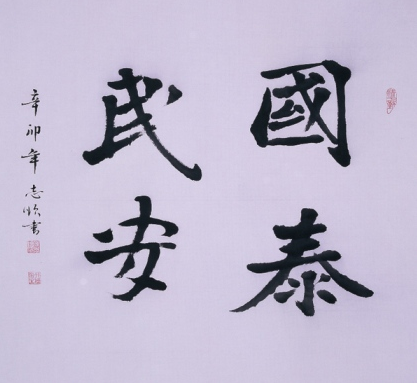 國泰
民安
辛卯年志欣書